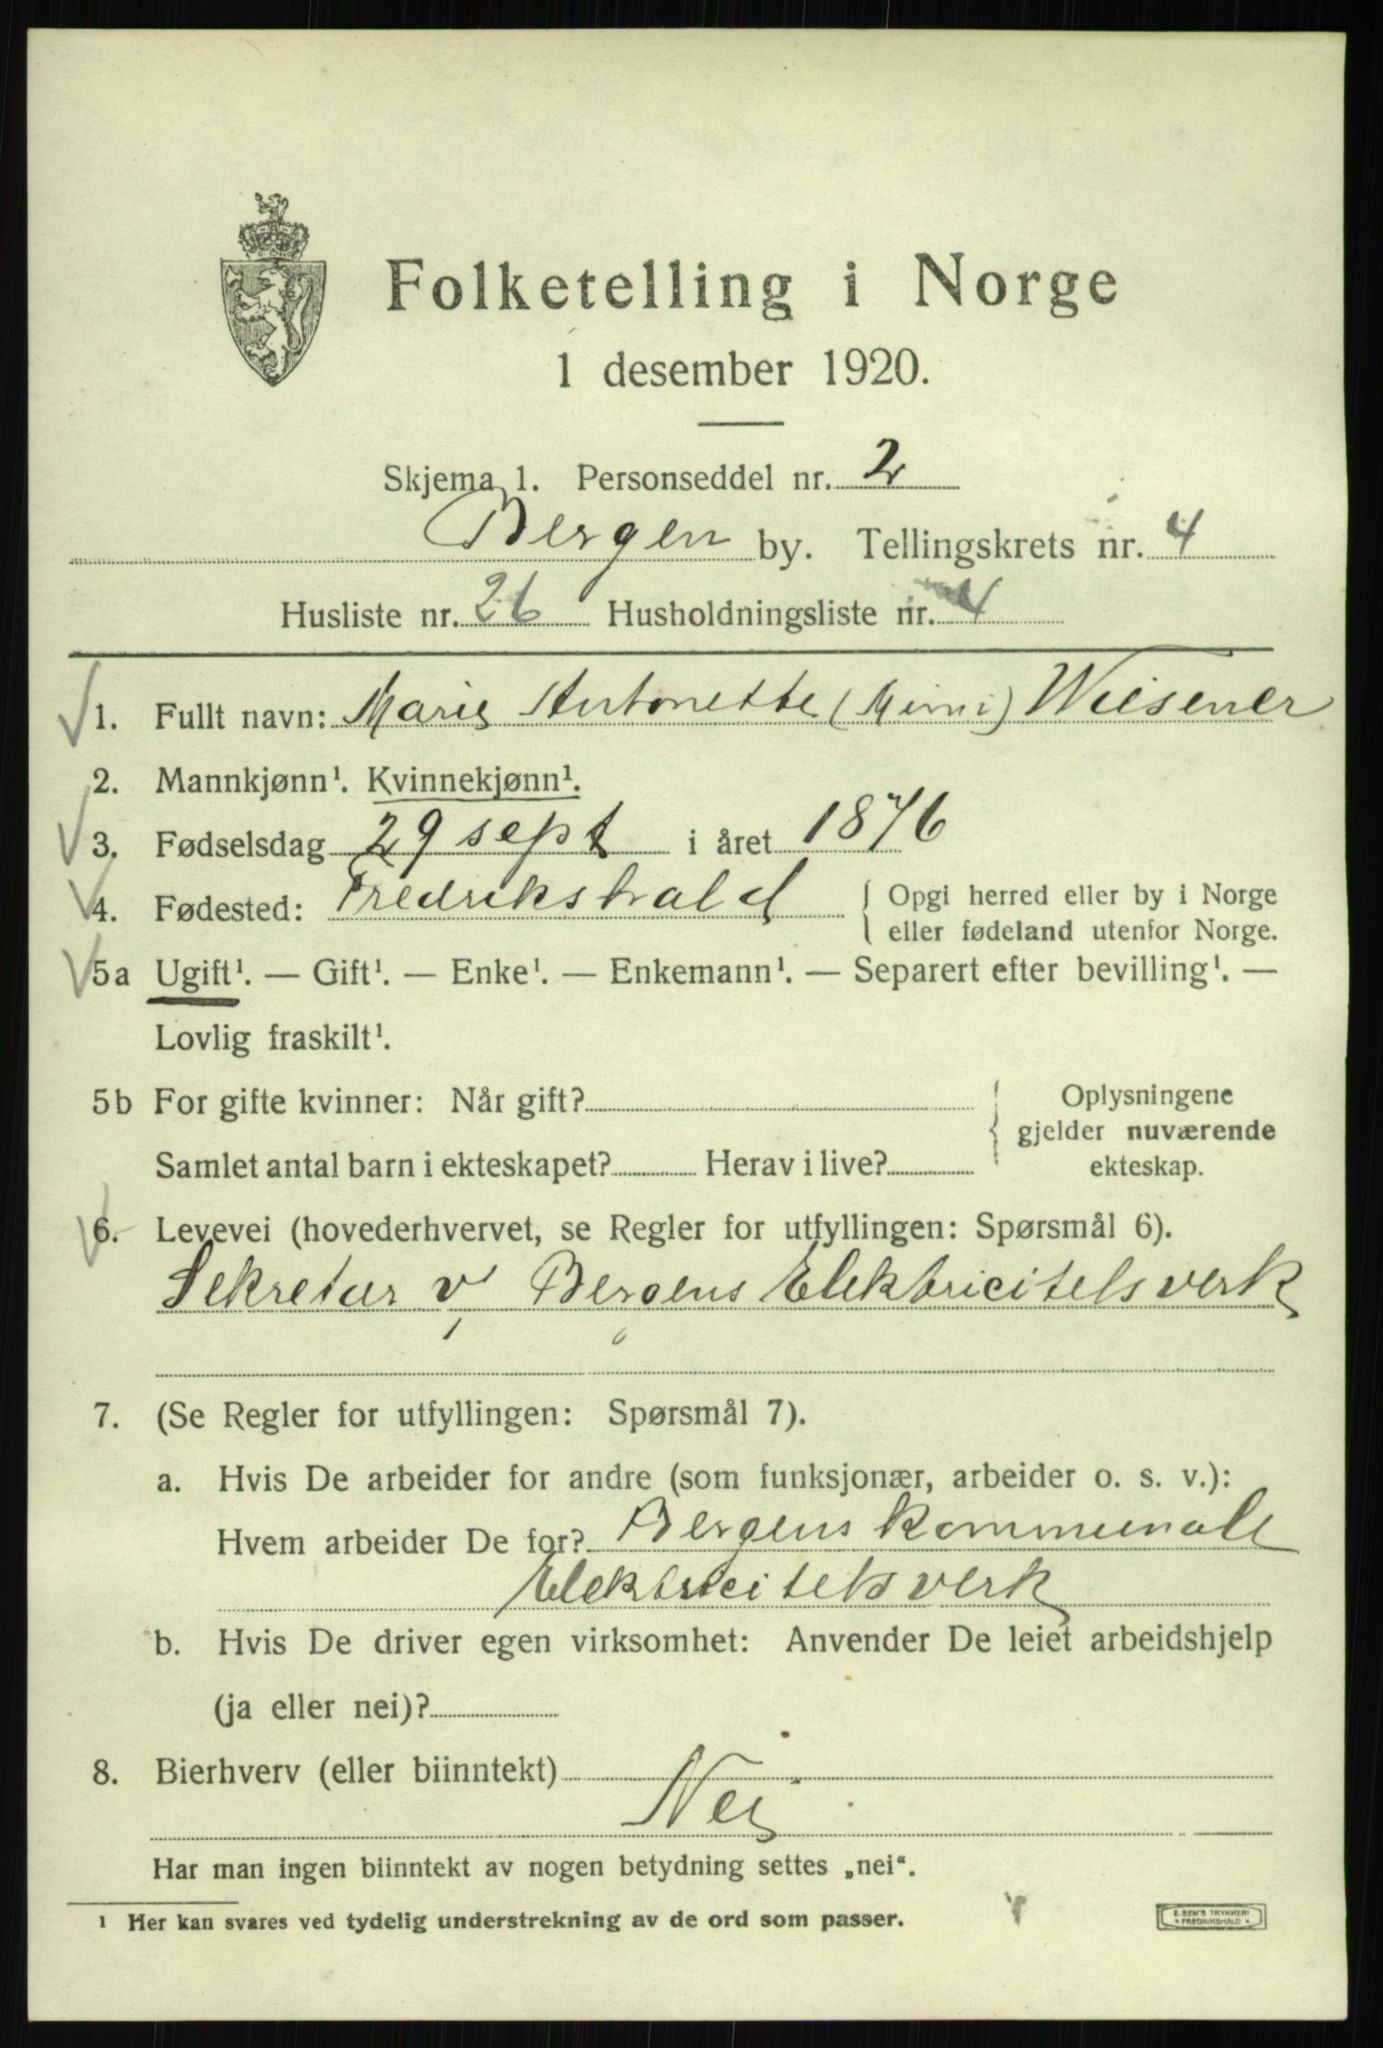 Folketelling i Norge
1 desember 1920.
Skjema 1. Personseddel nr. 2
Bergen by. Tellingskrets nr. 4
Husliste nr. 26 Husholdningsliste nr. 4
1. Fullt navn: Marie Antonette (Mimi) Wiesener
2. Mannkjønn¹. Kvinnekjønn¹.
3. Fødselsdag 29 sept i året 1876
4. Fødested: Fredrikshald { Opgi herred eller by i Norge
eller fødeland utenfor Norge.
5a Ugift¹. — Gift¹. — Enke¹. — Enkemann¹. — Separert efter bevilling¹. —
Lovlig fraskilt¹.
5b For gifte kvinner: Når gift? { Oplysningene
gjelder nuværende
Samlet antal barn i ekteskapet? Herav i live? ekteskap.
6. Levevei (hovederhvervet, se Regler for utfyllingen: Spørsmål 6).
Sekretær v/ Bergens Elektricitetsverk
7. (Se Regler for utfyllingen: Spørsmål 7).
a. Hvis De arbeider for andre (som funksjonær, arbeider o. s. v.):
Hvem arbeider De for? Bergens kommunale
Elektricitetsverk
b. Hvis De driver egen virksomhet: Anvender De leiet arbeidshjelp
(ja eller nei)?
8. Bierhverv (eller biinntekt)
Nei
Har man ingen biinntekt av nogen betydning settes „nei“.
¹ Her kan svares ved tydelig understrekning av de ord som passer.
E. SEM'S TRYKKERI
• FREDRIKSHALD •